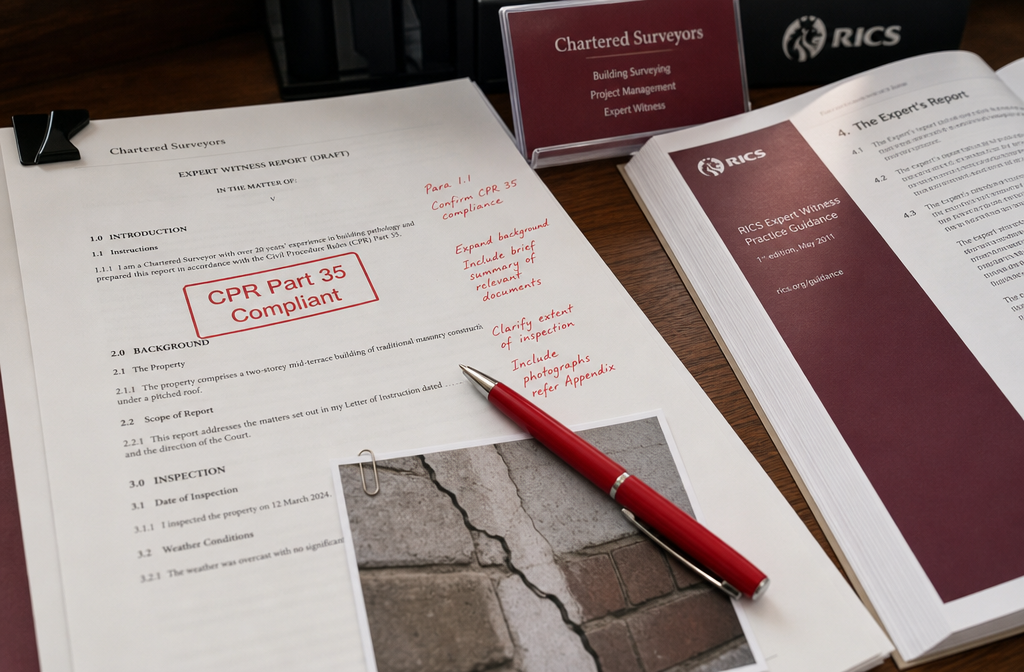 Chartered Surveyors
EXPERT WITNESS REPORT (DRAFT)
IN THE MATTER OF:
V
1.0 INTRODUCTION
1.1 Instructions
1.1.1 I am a Chartered Surveyor with over 20 years' experience in building pathology and
prepared this report in accordance with the Civil Procedure Rules (CPR) Part 35.
CPR Part 35
Compliant
2.0 BACKGROUND
2.1 The Property
2.1.1 The property comprises a two-storey mid-terrace building of traditional masonry
under a pitched roof.
2.2 Scope of Report
2.2.1 This report addresses the matters set out in my Letter of Instruction dated ......
and the direction of the Court.
3.0 INSPECTION
3.1 Date of Inspection
3.1.1 I inspected the property on 12 March 2024.
3.2 Weather Conditions
3.2.1 The weather was overcast with no
Para 1.1
Confirm CPR 35
compliance
Expand background
Include brief
summary of
relevant
documents
Clarify extent
of inspection
Include
photographs
refer Appendix
Chartered Surveyors
Building Surveying
Project Management
Expert Witness
RICS
RICS
RICS Expert Witness
Practice Guidance
1st edition, May 2011
rics.org/guidance
4. The Expert's Report
4.1 The Expert's report
4.2 The expert's report
4.3 The expert's
The expert's
The